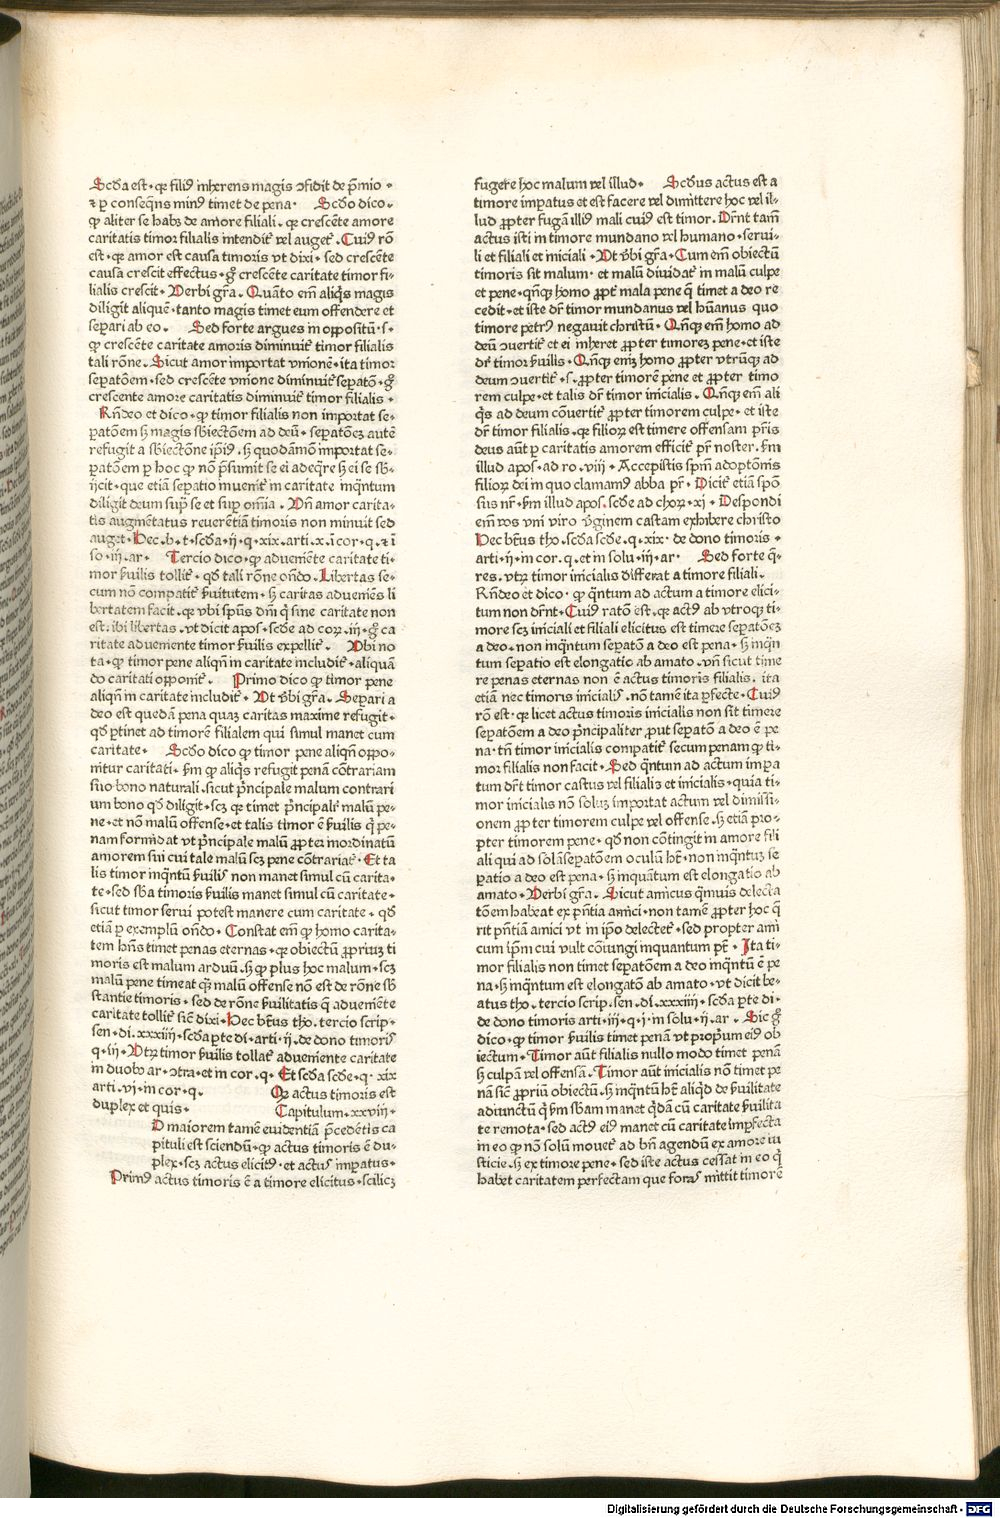 Scďa est · qꝛ filiꝰ inherens magis ꝯfidit de p̄mio ·
⁊ ꝑ conseq̄ns minꝰ timet de pena · Scďo dico ·
ꝙ aliter se habꝫ de amore filiali · qꝛ cresce̅te amore
caritatis timor filialis intendit᷑ vel auget᷑ . Cuiꝰ rō
est · qꝛ amor est causa timoris vt dixi · sed cresce̅te
causa crescit effectus · gͦ cresce̅te caritate timor fi-
lialis crescit · Verbi gr̄a . Qua̅to em̄ aliq̄s magis
diligit alique̅ · tanto magis timet eum offendere et
seꝑari ab eo . Sed forte argues in oppositū · s ·
ꝙ cresce̅te caritate amoris diminuit᷑ timor filialis
tali rōne . Sicut amor importat vnione̅ · ita timor
seꝑato̅em · sed cresce̅te vnione diminuit᷑ seꝑato̅ · gͦ
crescente amore caritatis diminuit᷑ timor filialis ·
Rn̄deo et dico · ꝙ timor filialis non importat se-
ꝑato̅em sꝫ magis sb̄iecto̅em ad deū · seꝑato̅eꝫ aute̅
refugit a sb̄iecto̅ne ip̄iꝰ . sꝫ quoda̅mō importat se-
ꝑato̅em ꝑ hoc ꝙ nō p̄sumit se ei adeq̄re sꝫ ei se sb̄-
ijcit · que etia̅ seꝑatio inuenit᷑ in caritate inq̄ntum
diligit deum sup̄ se et sup̄ om̄ia . Vn̄ amor carita-
tis augme̅tatus reuere̅tia̅ timoris non minuit sed
auget · Hec · b · t · scďa · ij · q · xix · arti · x · ī cor · q · ⁊ ī
so · iij · ar · Tercio dico · ꝙ adueni̅ete caritate ti-
mor ẜuilis tollit᷑ · qď tali rōne on̄do . Libertas se-
cum nō compatit᷑ ẜuitutem · sꝫ caritas adueni̅es li
bertatem facit · qꝛ vbi sp̄us dn̄i q̄ sine caritate non
est . ibi libertas . vt dicit apos · scďe ad corꝝ · iij · gͦ ca
ritate adueniente timor ẜuilis expellit᷑ . Vbi no
ta · ꝙ timor pene aliqn̄ in caritate includit᷑ · aliqua̅
do caritati opponit᷑ . Primo dico ꝙ timor pene
aliqn̄ in caritate includit᷑ · Vt v̄bi gr̄a · Seꝑari a
deo est queda̅ pena quaꝫ caritas maxime refugit ·
qď ꝑtinet ad timore̅ filialem qui simul manet cum
caritate · Scďo dico ꝙ timor pene aliqn̄ oppo-
nitur caritati · ẜm ꝙ aliq̄s refugit pena̅ co̅trariam
suo bono naturali . sicut p̄ncipale malum contrari
um bono qď diligit · scꝫ qꝛ timet p̄ncipalr̄ malū pe-
ne · et nō malū offense · et talis timor ē ẜuilis q̄ pe-
nam formidat vt p̄ncipale malū ꝓpter inordinatū
amorem sui cui tale malū scꝫ pene co̅trariat᷑ · Et ta
lis timor inq̄ntū ẜuilis non manet simul cū carita-
te · sed sb̄a timoris ẜuilis manet simul cū caritate ·
sicut timor serui potest manere cum caritate · qď
etia̅ ꝑ exemplū on̄do · Constat em̄ ꝙ homo carita-
tem hn̄s timet penas eternas · qꝛ obiectū ꝓpriuꝫ ti
moris est malum arduū . sꝫ ꝙ plus hoc malum · scꝫ
malū pene timeat q̄ꝫ malū offense nō est de rōne sb̄
stantie timoris · sed de rōne ẜuilitatis q̄ adueni̅ete
caritate tollit᷑ sic̄ dixi · Hec bt̄us tho . tercio scrip ·
sen · di · xxxiiij · scďa ꝑte di · arti · ij · de dono timorꝭ
q · iij · Vtꝝ timor ẜuilis tollat᷑ adueniente caritate
in duobꝰ ar · ꝯtra · et in cor · q · Et scďa scďe · q · xix
arti · vi · in cor · q . Qꝛ actus timoris est
duplex et quis · Capitulum · xxviij ·
D maiorem tame̅ euidentia̅ p̄cede̅tis ca
pituli est sciendū · ꝙ actus timoris ē du-
plex · scꝫ actus elicitꝰ · et actus imꝑatus ·
Primꝰ actus timoris ē a timore elicitus · scilicꝫ
fugere hoc malum vel illud · Scďus actus est a
timore imꝑatus et est facere vel dimittere hoc vel il-
lud ꝓpter fuga̅ illiꝰ mali cuiꝰ est timor . Dr̄nt tam̄
actus isti in timore mundano vel humano · serui-
li et filiali et iniciali · Vt v̄bi gr̄a · Cum em̄ obiectū
timoris sit malum · et malū diuidat᷑ in malū culpe
et pene · qn̄qꝫ homo ꝓpt᷑ mala pene q̄ timet a deo re
cedit · et iste dr̄ timor mundanus vel hu̅anus quo
timore petrꝰ negauit christū · Qn̄qꝫ em̄ homo ad
deū ꝯuertit᷑ et ei inheret ꝓpter timoreꝫ pene · et iste
dr̄ timor ẜuilis · Qn̄qꝫ em̄ homo ꝓpter vtrūqꝫ ad
deum ꝯuertit᷑ · s · ꝓpter timore̅ pene et ꝓpter timo
rem culpe · et talis dr̄ timor inicialis . Qn̄qꝫ em̄ ali
q̄s ad deum co̅uertit᷑ ꝓpter timorem culpe · et iste
dr̄ timor filialis · qꝛ filioꝝ est timere offensam pr̄is
deus aūt ꝑ caritatis amorem efficit᷑ pr̄ noster · ẜm
illud apos · ad ro · viij · Accepistis spm̄ adopto̅nis
filioꝝ dei in quo clamamꝰ abba pr̄ · Dicit᷑ etia̅ spō
sus nr̄ · ẜm illud apos . scďe ad chorꝝ · xi · Despondi
em̄ vos vni viro v̄ginem castam exhibere christo
Hec bt̄us tho . scďa scďe . q · xix · de dono timoris ·
arti · ij · in cor . q . et in solu · iij · ar · Sed forte q̄-
res . vtꝝ timor inicialis differat a timore filiali .
Rn̄deo et dico · ꝙ q̄ntum ad actum a timore elici-
tum non dr̄nt · Cuiꝰ rato̅ est . qꝛ actꝰ ab vtroqꝫ ti-
more scꝫ iniciali et filiali elicitus est timere seꝑato̅eꝫ
a deo · non inq̄ntum seꝑato̅ a deo est pena · sꝫ inq̄n
tum seꝑatio est elongatio ab amato . vn̄ sicut time
re penas eternas non ē actus timoris filialis . ita
etia̅ nec timoris inicialis . nō tame̅ ita ꝑfecte · Cuiꝰ
rō est · qꝛ licet actus timoris inicialis non sit timere
seꝑato̅em a deo p̄ncipaliter ꝓut seꝑato̅ a deo ē pe
na · tn̄ timor inicialis compatit᷑ secum penam ꝙ ti-
mor filialis non facit · Sed q̄ntum ad actum imꝑa
tum dr̄t timor castus vel filialis et inicialis · quia ti-
mor inicialis nō soluꝫ importat actum vel dimissi-
onem ꝓpter timorem culpe vel offense . sꝫ etia̅ pro-
pter timorem pene · qď non co̅tingit in amore fili
ali qui ad sola̅ seꝑato̅em oculum hꝫ̄ · non inq̄ntuꝫ se
ꝑatio a deo est pena · sꝫ inquantum est elongatio ab
amato · Verbi gr̄a · Sicut amicus q̄muis delecta
to̅em habeat ex p̄ntia amici · non tame̅ ꝓpter hoc q̄
rit p̄ntia̅ amici vt in ip̄o delectet᷑ · sed propter ami
cum ip̄m cui vult co̅iungi inquantum pt̄ · Ita ti-
mor filialis non timet seꝑato̅em a deo inq̄ntū ē pe
na · sꝫ inquantum est elongato̅ ab amato · vt dicit be-
atus tho . tercio scrip . sen · di . xxxiiij · scďa ꝑte di ·
de dono timoris arti · iij · q · j · in solu · ij · ar · Sic gͦ
dico · ꝙ timor ẜuilis timet pena̅ vt propriū eiꝰ ob
iectum · Timor aūt filialis nullo modo timet pena̅
sꝫ culpa̅ vel offensa̅ . Timor aūt inicialis nō timet pe
na̅ sic̄ ꝓpriū obiectū · sꝫ inq̄ntū hꝫ̄ aliqď de ẜuilitate
adiunctū q̄ ẜm sb̄am manet q̄da̅ cū caritate ẜuilita
te remota · sed actꝰ eiꝰ manet cū caritate imꝑfecta
in eo ꝙ nō solū mouet᷑ ad bn̄ agendū ex amore iu
sticie . sꝫ ex timore pene · sed iste actus cessat in eo q̄
habet caritatem perfectam que foras mittit timore̅
Digitalisierung gefördert durch die Deutsche Forschungsgemeinschaft - DFG